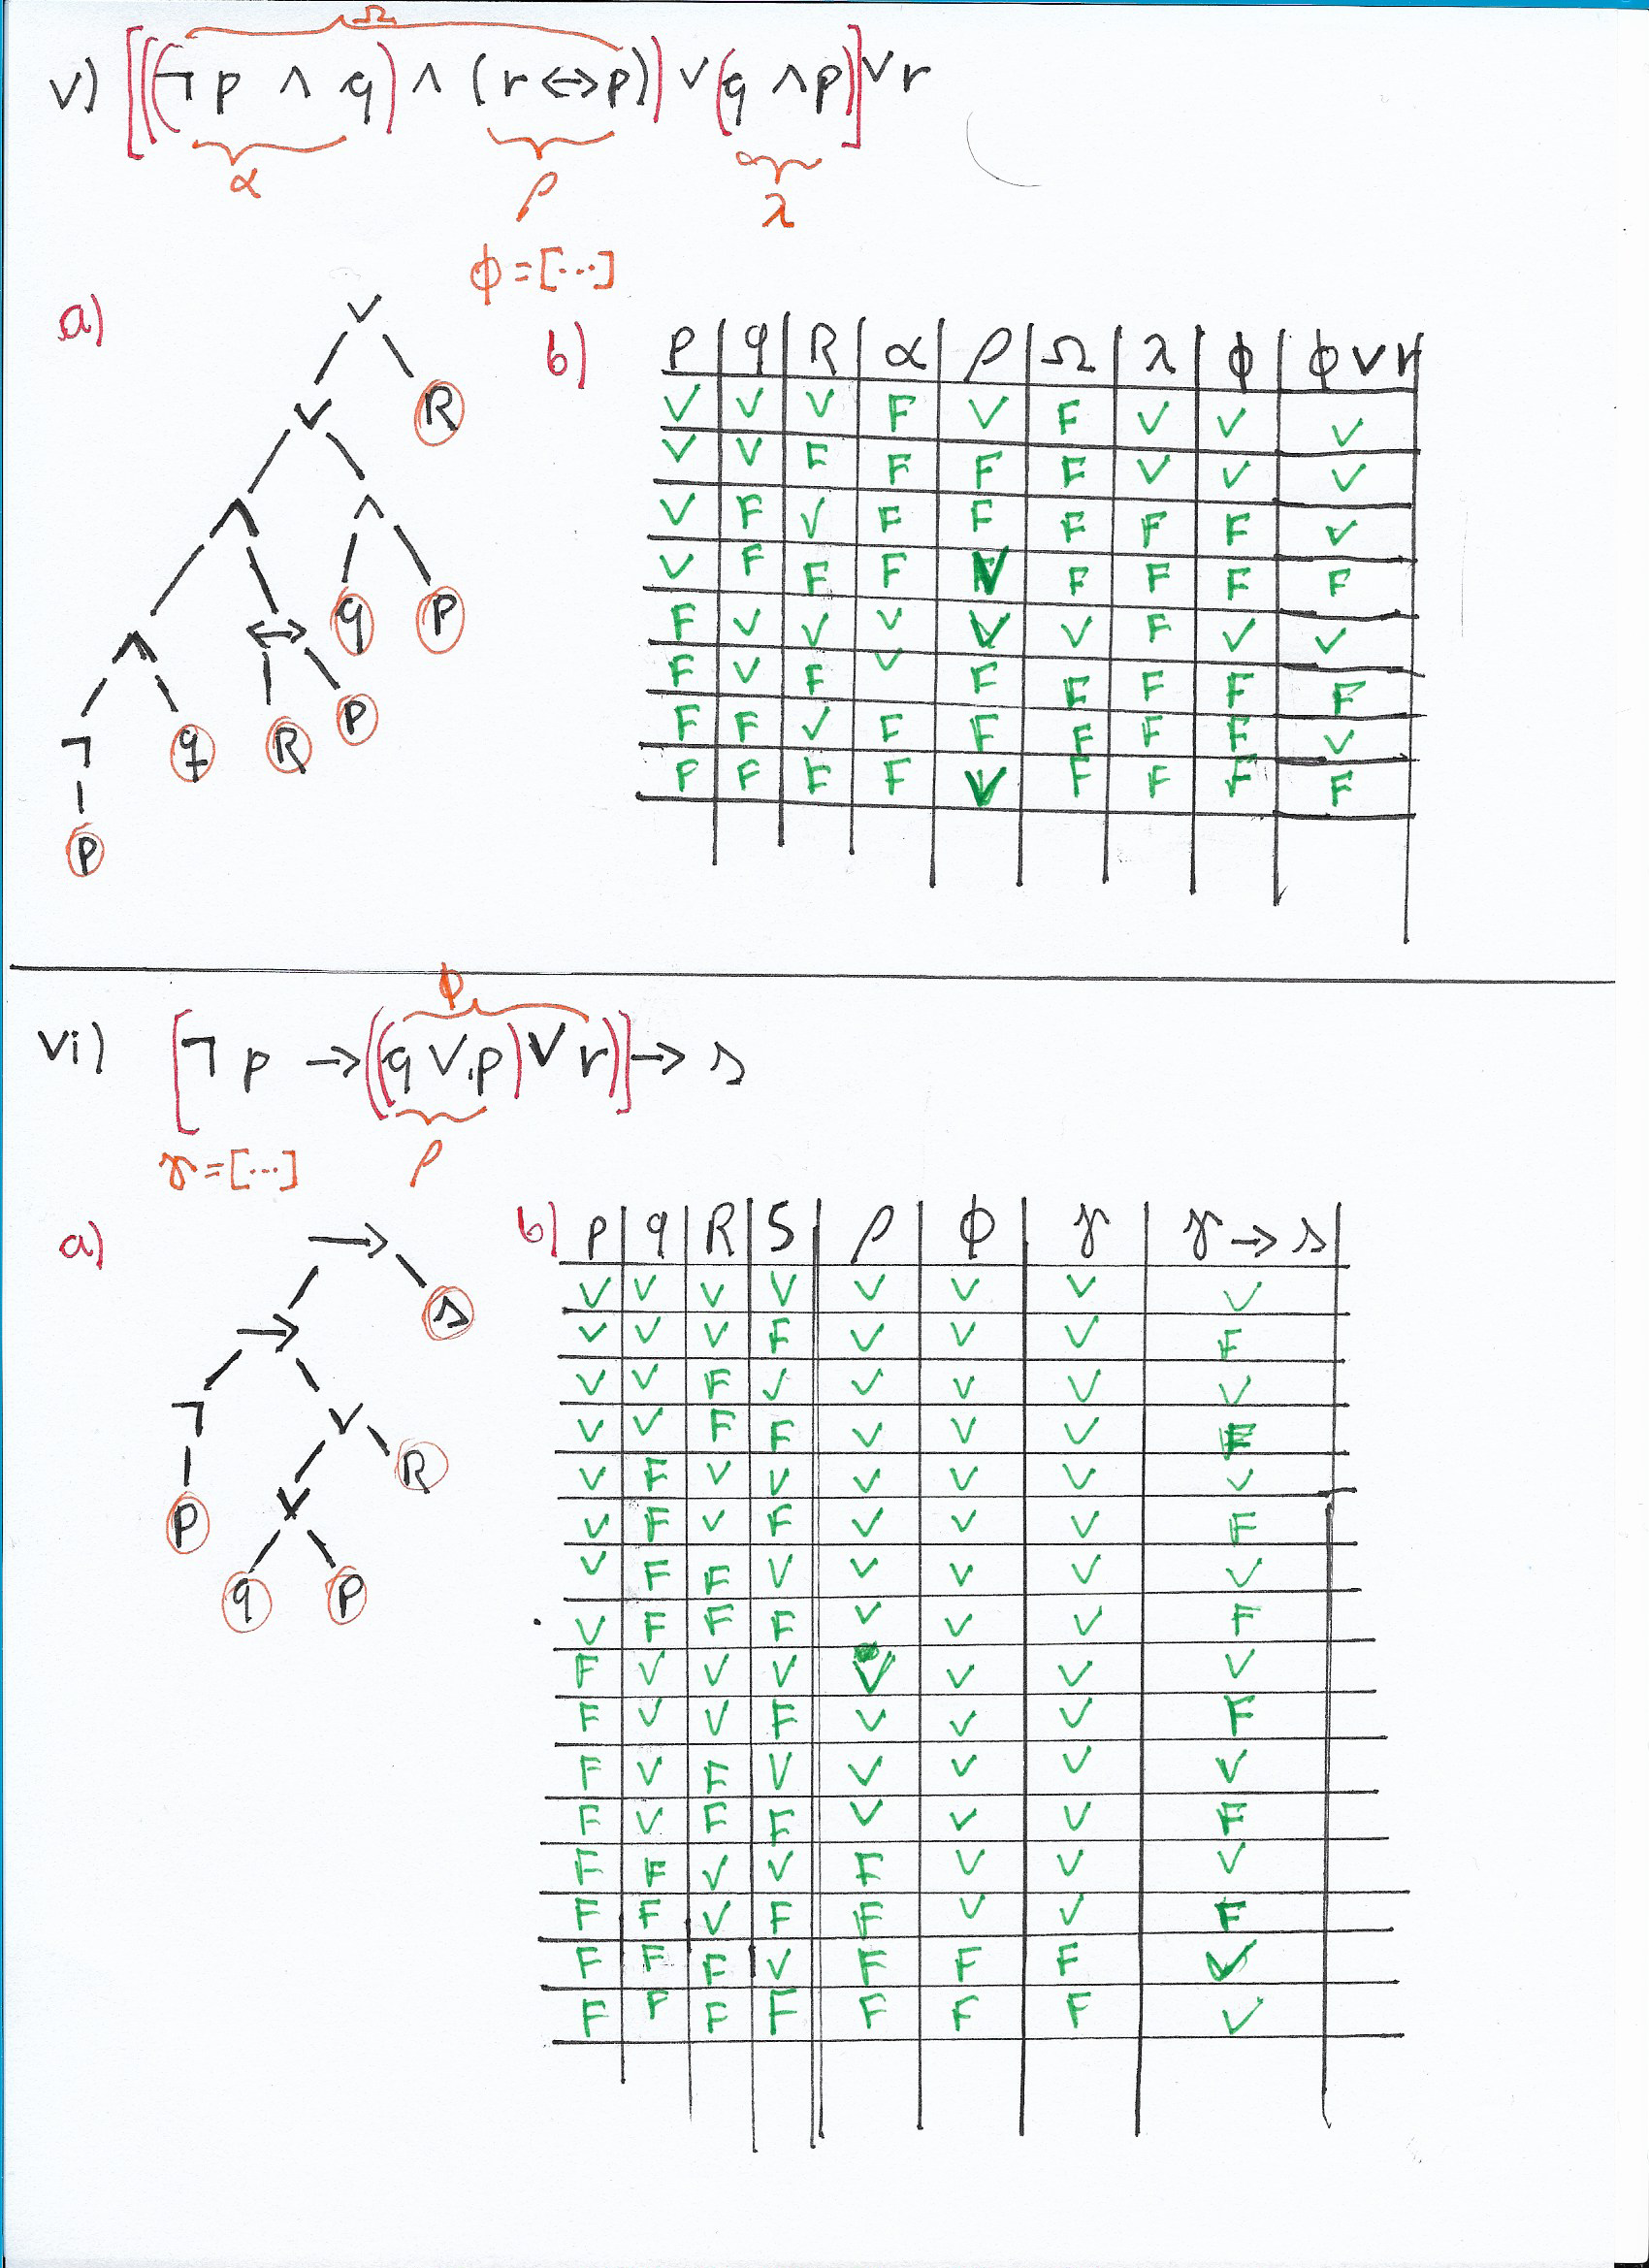 Ω
v) [((¬p ∧ q) ∧ (r ↔ p)) ∨ (q ∧ p)] ∨ r
α ρ λ
φ = [...]
a)
∨
∨ R
∧ ∧
∧ ↔ q P
¬ q R P
P
b)
P q R α ρ Ω λ φ φ ∨ r
V V V F V F V V V
V V F F F F V V V
V F V F F F F F V
V F F F V F F F F
F V V V V V F V V
F V F V F F F F F
F F V F F F F F V
F F F F V F F F F
φ
vi) [¬p → ((q ∨ p) ∨ r)] → s
γ = [...] ρ
a)
→
→ s
¬ ∨
P ∨ R
q P
b)
P q R S ρ φ γ γ → s
V V V V V V V V
V V V F V V V F
V V F V V V V V
V V F F V V V F
V F V V V V V V
V F V F V V V F
V F F V V V V V
V F F F V V V F
F V V V V V V V
F V V F V V V F
F V F V V V V V
F V F F V V V F
F F V V F V V V
F F V F F V V F
F F F V F F F V
F F F F F F F V